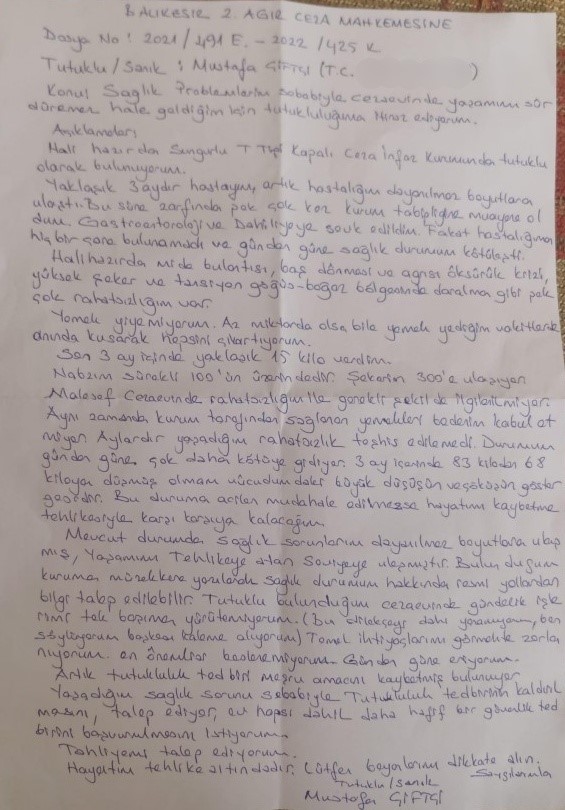 BALIKESİR 2. AĞIR CEZA MAHKEMESİNE
Dosya No: 2021/491 E. - 2022/425 K
Tutuklu/Sanık : Mustafa ÇİFTÇİ (T.C. )
Konu: Sağlık Problemlerim sebebiyle cezaevinde yaşamımı sür
düremez hale geldiğim için tutukluluğuma itiraz ediyorum.
Açıklamalar:
Hali hazırda Sungurlu T Tipi Kapalı Ceza İnfaz Kurumunda tutuklu
olarak bulunuyorum.
Yaklaşık 3 aydır hastayım, artık hastalığım dayanılmaz boyutlara
ulaştı. Bu süre zarfında pek çok kez kurum tabipliğine muayene ol
dum. Gastroentoroloji ve Dahiliyeye sevk edildim. Fakat hastalığıma
hiç bir çare bulunamadı ve günden güne sağlık durumum kötüleşti.
Halihazırda mide bulantısı, baş dönmesi ve ağrısı öksürük krizi,
yüksek şeker ve tansiyon göğüs-boğaz bölgesinde daralma gibi pek
çok rahatsızlığım var.
Yemek yiyemiyorum. Az miktarda olsa bile yemek yediğim vakitlerde
anında kusarak hepsini çıkartıyorum.
Son 3 ay içinde yaklaşık 15 kilo verdim.
Nabzım sürekli 100'ün üzerindedir. Şekerim 300'e ulaşıyor.
Malesef Cezaevinde rahatsızlığım ile gerekli şekilde ilgilenilmiyor.
Aynı zamanda kurum tarafından sağlanan yemekleri bedenim kabul et
miyor. Aylardır yaşadığım rahatsızlık teşhis edilemedi. Durumum
günden güne çok daha kötüye gidiyor. 3 ay içerinde 83 kiladan 68
kiloya düşmüş olmam vücudumdaki büyük düşüşün ve çöküşün göster
gesidir. Bu duruma acilen müdahale edilmezse hayatımı kaybetme
tehlikesiyle karşı karşıya kalacağım.
Mevcut durumda sağlık sorunlarım dayanılmaz boyutlara ulaş
mış, Yaşamımı Tehlikeye atan Seviyeye ulaşmıştır. Bulunduğum
kuruma müzekkere yazılarak sağlık durumum hakkında resmi yollardan
bilgi talep edilebilir. Tutuklu bulunduğum cezaevinde gündelik işle
rimi tek başıma yürütemiyorum. (Bu dilekçeyi dahi yazamıyorum, ben
söylüyorum başkası kaleme alıyor) Temel ihtiyaçlarımı görmekte zorla
nıyorum. en önemlisi beslenemiyorum. Günden güne eriyorum.
Artık tutukluluk tedbiri meşru amacını kaybetmiş bulunuyor
Yaşadığım sağlık sorunu sebebiyle Tutukluluk tedbirinin kaldırıl
masını, talep ediyor, ev hapsi dahil daha hafif bir güvenlik ted
birini başvurulmasını istiyorum.
Tahliyemi talep ediyorum.
Hayatım tehlike altındadır. Lütfen beyanlarımı dikkate alın.
Saygılarımla
Tutuklu/Sanık
Mustafa ÇİFTÇİ